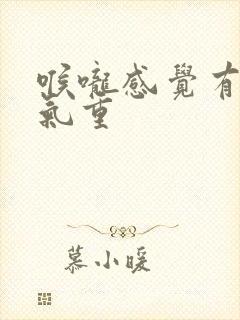 喉嚨感覺有
氣重
慕小暖